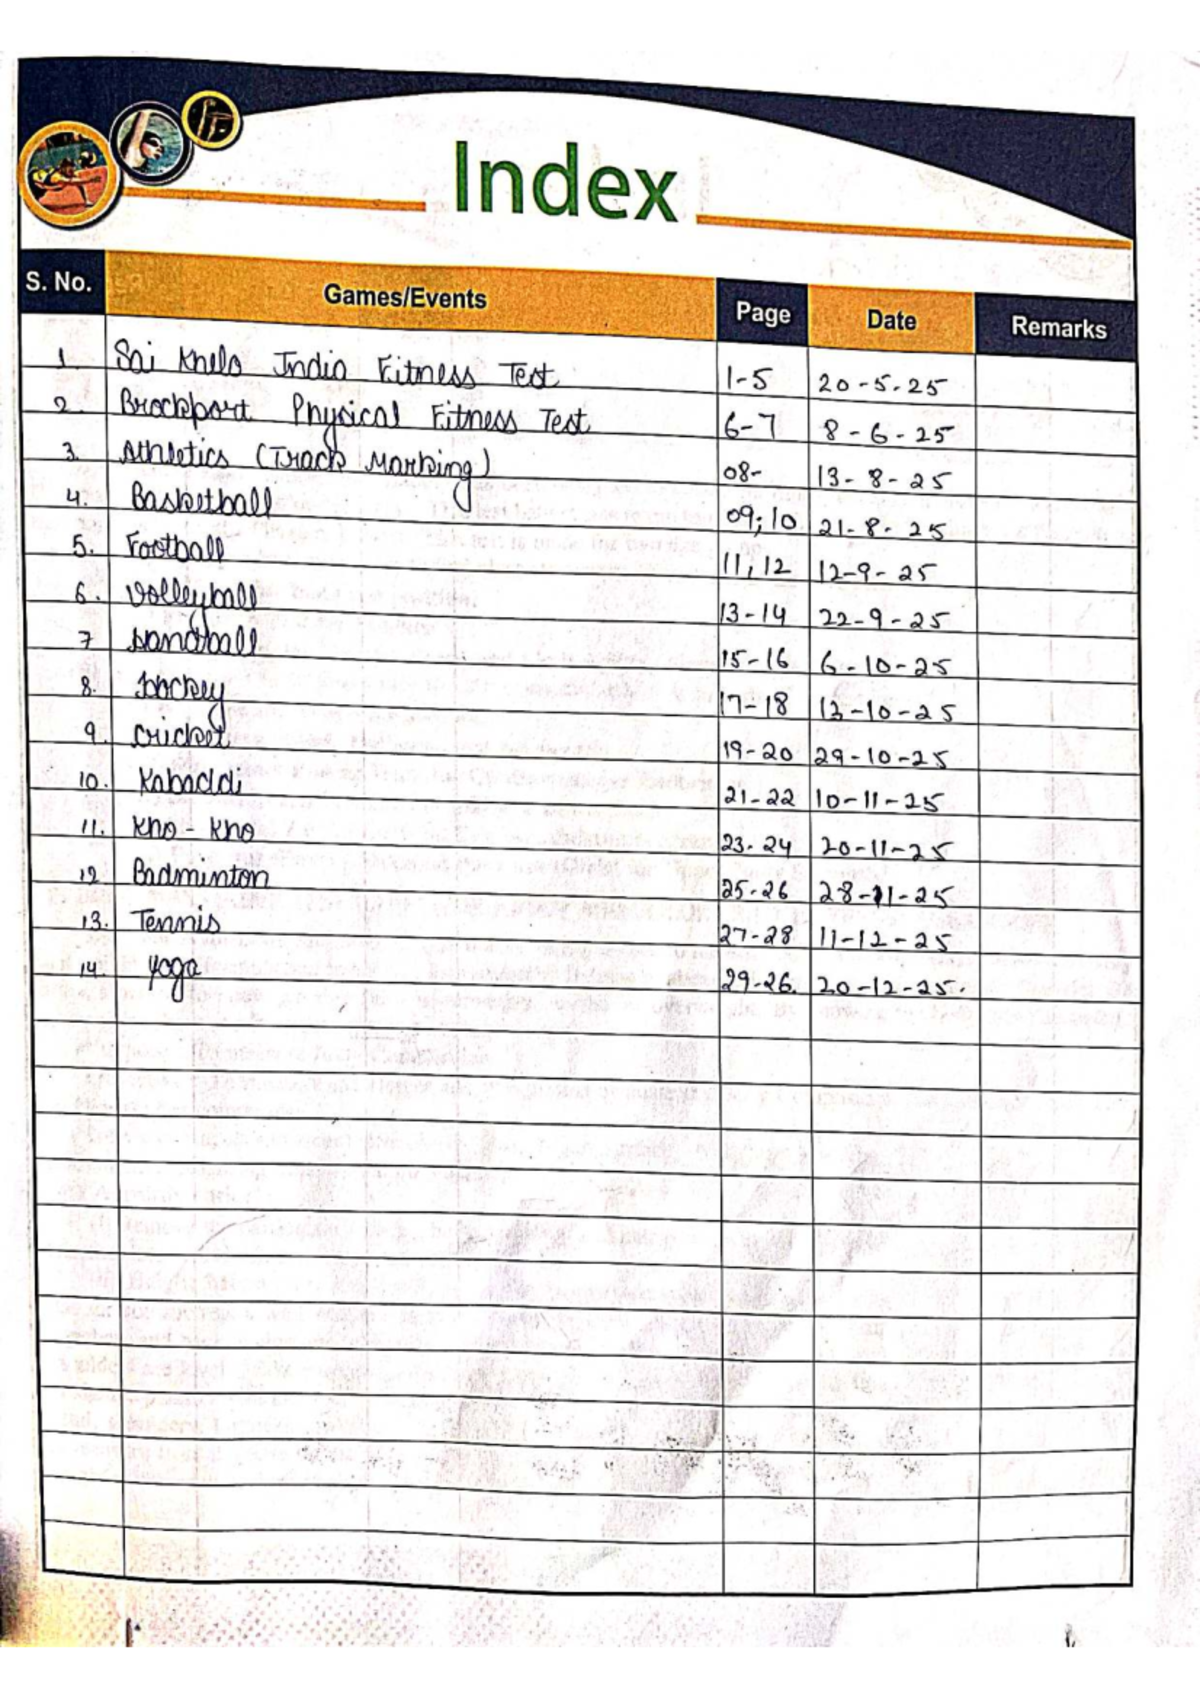 Index
S. No. Games/Events Page Date Remarks
1 Sai Khelo India Fitness Test 1-5 20-5-25
2. Brockport Physical Fitness Test 6-7 8-6-25
3. Athletics (Track Marking) 08- 13-8-25
4. Basketball 09; 10 21-8-25
5. Football 11, 12 12-9-25
6. Volleyball 13-14 22-9-25
7 Handball 15-16 6-10-25
8. Hockey 17-18 13-10-25
9. Cricket 19-20 29-10-25
10. Kabaddi 21-22 10-11-25
11. Kho-Kho 23-24 20-11-25
12 Badminton 25-26 28-11-25
13. Tennis 27-28 11-12-25
14. Yoga 29-26. 20-12-25.